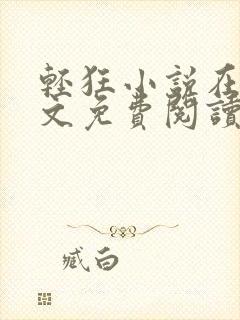 輕狂小說在
文免費閱讀
臧白